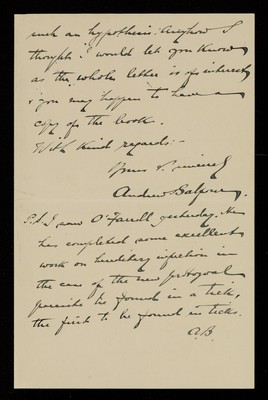 such an hypothesis. Anyhow I
thought I would let you know
as the whole letter is of interest
& you may happen to have a
copy of the book.
With kind regards:-
Yours sincerely
Andrew Balfour.
P.S. I saw O'Farrell yesterday. He
has completed some excellent
work on hereditary infection in
the case of the new protozoal
parasite he found in a tick,
the first to be found in ticks.
A.B.